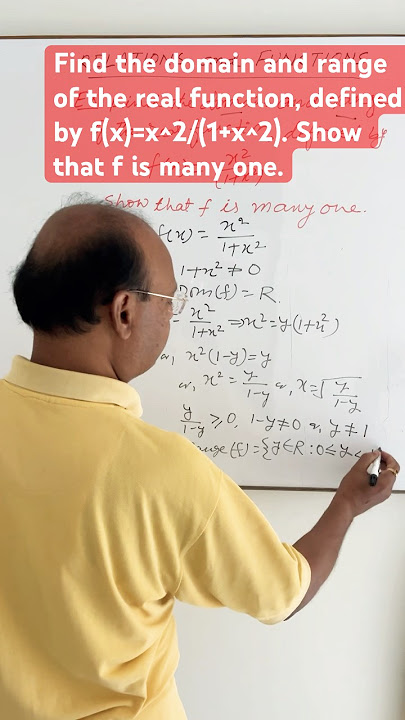 RELATIONS AND FUNCTIONS
Find the domain and range
of the real function, defined
by f(x)=x^2/(1+x^2). Show
that f is many one.
Show that f is many one.
f(x) = x²/1+x²
1+x² ≠ 0
Dom(f) = R.
= x²/1+x² ⇒ x² = y(1+x²)
or, x²(1-y) = y
or, x² = y/1-y or, x = √y/1-y
y/1-y ≥ 0, 1-y ≠ 0 or, y ≠ 1
Range(f) = {y ∈ R : 0 ≤ y <